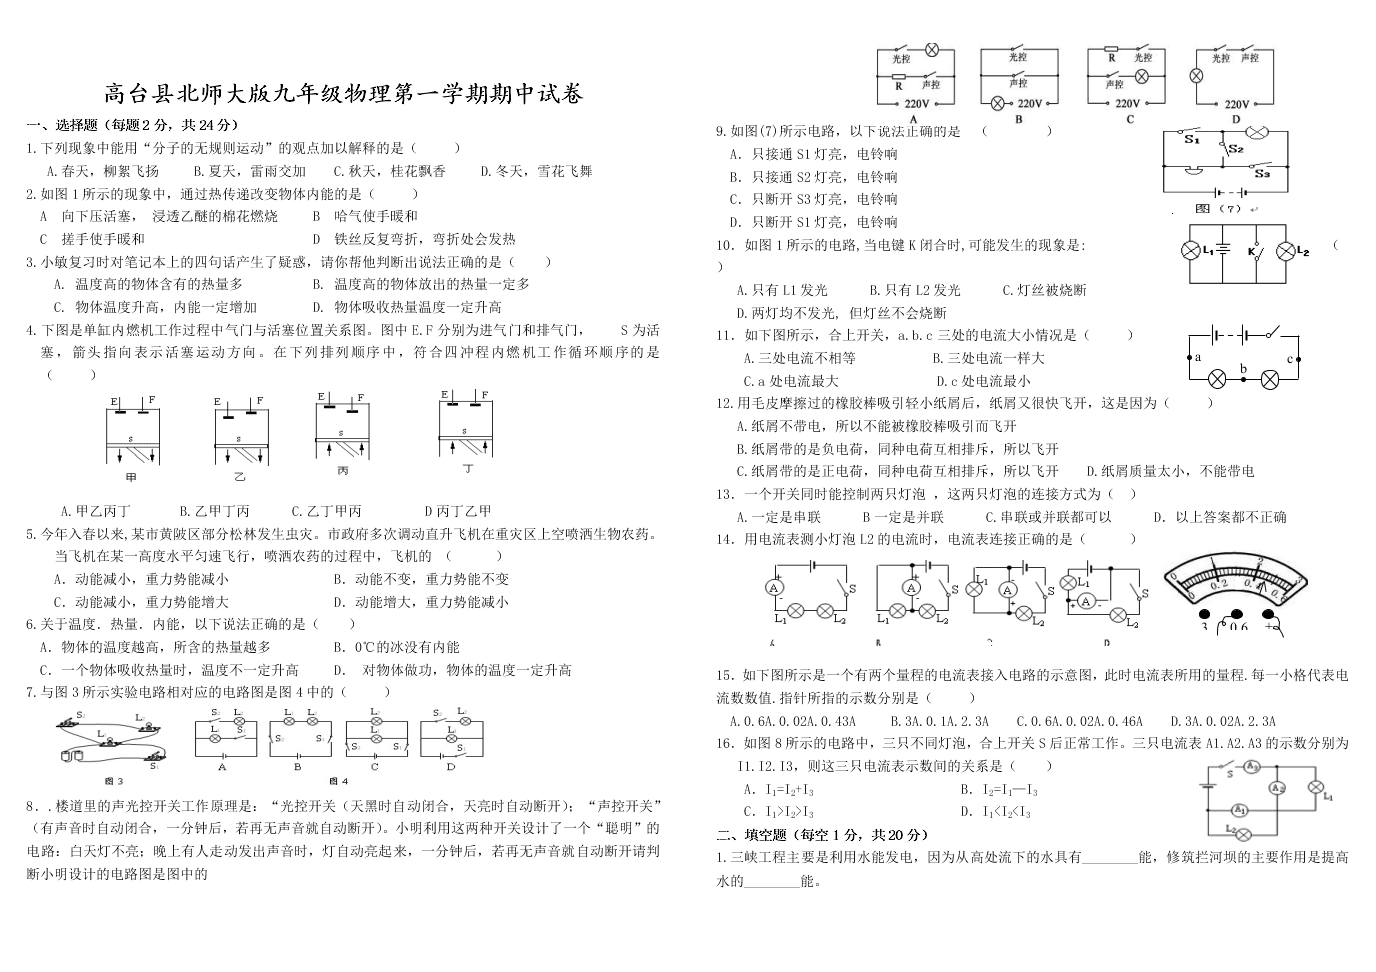 高台县北师大版九年级物理第一学期期中试卷
一、选择题（每题2分，共24分）
1.下列现象中能用“分子的无规则运动”的观点加以解释的是（　　）
A.春天，柳絮飞扬　　B.夏天，雷雨交加　　C.秋天，桂花飘香　　D.冬天，雪花飞舞
2.如图1所示的现象中，通过热传递改变物体内能的是（　　）
A　向下压活塞，　浸透乙醚的棉花燃烧　　B　哈气使手暖和
C　搓手使手暖和　　D　铁丝反复弯折，弯折处会发热
3.小敏复习时对笔记本上的四句话产生了疑惑，请你帮他判断出说法正确的是（　　）
A. 温度高的物体含有的热量多　　B. 温度高的物体放出的热量一定多
C. 物体温度升高，内能一定增加　　D. 物体吸收热量温度一定升高
4.下图是单缸内燃机工作过程中气门与活塞位置关系图。图中E.F分别为进气门和排气门，　　S为活
塞，箭头指向表示活塞运动方向。在下列排列顺序中，符合四冲程内燃机工作循环顺序的是
（　　）
E　F　E　F　E　F　E　F
S　S　S　S
甲　乙　丙　丁
A.甲乙丙丁　　B.乙甲丁丙　　C.乙丁甲丙　　D丙丁乙甲
5.今年入春以来,某市黄陂区部分松林发生虫灾。市政府多次调动直升飞机在重灾区上空喷洒生物农药。
当飞机在某一高度水平匀速飞行，喷洒农药的过程中，飞机的 （　　）
A．动能减小，重力势能减小　　B．动能不变，重力势能不变
C．动能减小，重力势能增大　　D．动能增大，重力势能减小
6.关于温度．热量．内能，以下说法正确的是（　　）
A．物体的温度越高，所含的热量越多　　B．0℃的冰没有内能
C．一个物体吸收热量时，温度不一定升高　　D．　对物体做功，物体的温度一定升高
7.与图3所示实验电路相对应的电路图是图4中的（　　）
S₂　L₂　L₁　S₁　S₂　L₂　L₁　S₁　L₁　L₂　S₂　S₁　L₂　L₁　S₂　S₁　S₂　L₂　L₁　S₁
A　B　C　D
图3　图4
8．.楼道里的声光控开关工作原理是：“光控开关（天黑时自动闭合，天亮时自动断开）；“声控开关”
（有声音时自动闭合，一分钟后，若再无声音就自动断开）。小明利用这两种开关设计了一个“聪明”的
电路：白天灯不亮；晚上有人走动发出声音时，灯自动亮起来，一分钟后，若再无声音就自动断开请判
断小明设计的电路图是图中的
光控　光控　R　光控　光控　声控
R　声控　声控　声控
220V　220V　220V　220V
A　B　C　D
9.如图(7)所示电路，以下说法正确的是　（　　）
A．只接通S1灯亮，电铃响
B．只接通S2灯亮，电铃响
C．只断开S3灯亮，电铃响
D．只断开S1灯亮，电铃响
S₁　S₂　S₃
图（7）
10．如图1所示的电路,当电键K闭合时,可能发生的现象是:　　（
）
L₁　K　L₂
A.只有L1发光　　B.只有L2发光　　C.灯丝被烧断
D.两灯均不发光, 但灯丝不会烧断
11．如下图所示，合上开关，a.b.c三处的电流大小情况是（　　）
A.三处电流不相等　　B.三处电流一样大
C.a处电流最大　　D.c处电流最小
a　b　c
12.用毛皮摩擦过的橡胶棒吸引轻小纸屑后，纸屑又很快飞开，这是因为（　　）
A.纸屑不带电，所以不能被橡胶棒吸引而飞开
B.纸屑带的是负电荷，同种电荷互相排斥，所以飞开
C.纸屑带的是正电荷，同种电荷互相排斥，所以飞开　　D.纸屑质量太小，不能带电
13．一个开关同时能控制两只灯泡 ，这两只灯泡的连接方式为（　）
A.一定是串联　　B一定是并联　　C.串联或并联都可以　　D．以上答案都不正确
14．用电流表测小灯泡L2的电流时，电流表连接正确的是（　　）
A　S　L₁　L₂　A　S　L₁　L₂　L₁　A　S　L₂　L₁　A　S　L₂
0　1　2　3　0　0.2　0.4　0.6
3　0.6　+
15．如下图所示是一个有两个量程的电流表接入电路的示意图，此时电流表所用的量程.每一小格代表电
流数数值.指针所指的示数分别是（　　）
A.0.6A.0.02A.0.43A　　B.3A.0.1A.2.3A　　C.0.6A.0.02A.0.46A　　D.3A.0.02A.2.3A
16．如图8所示的电路中，三只不同灯泡，合上开关S后正常工作。三只电流表A1.A2.A3的示数分别为
I1.I2.I3，则这三只电流表示数间的关系是（　　）
A．I₁=I₂+I₃　　B．I₂=I₁—I₃
C．I₁>I₂>I₃　　D．I₁<I₂<I₃
S　A₃　A₂　L₁　A₁　L₂
二、填空题（每空1分，共20分）
1.三峡工程主要是利用水能发电，因为从高处流下的水具有________能，修筑拦河坝的主要作用是提高
水的________能。